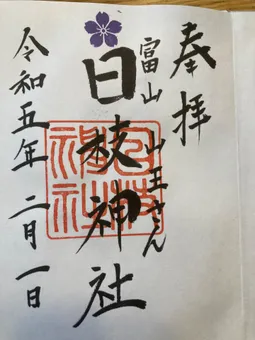 奉拝
富山 山王さん
日枝神社
令和五年 二月一日
日枝神社